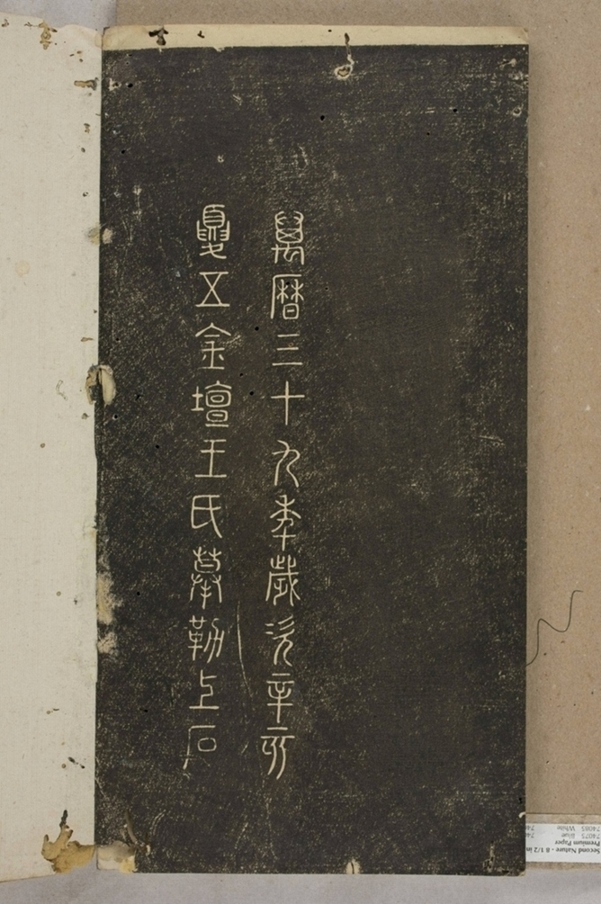 萬曆三十九秊歲次辛亥
夏五金壇王氏摹勒上石
Second Nature - 8 1/2 in
Premium Paper
74075 Blue 74
74085 White 74